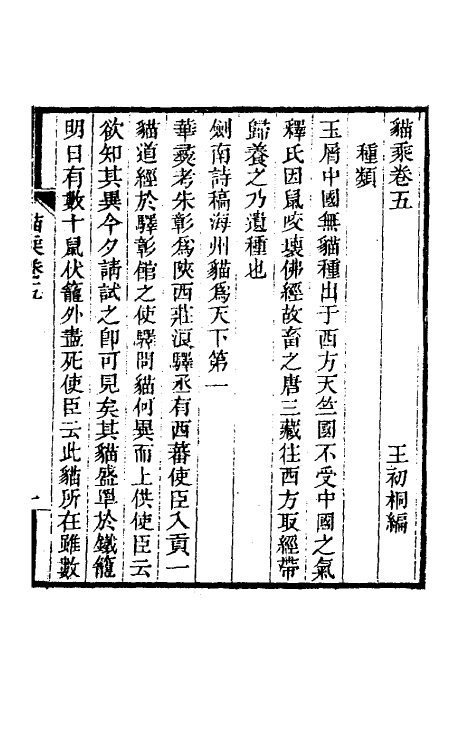 貓乘卷五
王初桐編
種類
玉屑中國無貓種出于西方天竺國不受中國之氣
釋氏因鼠咬壞佛經故畜之唐三藏往西方取經帶
歸養之乃遺種也
劍南詩稿海州貓爲天下第一
華夷考朱彰爲陝西莊浪驛丞有西蕃使臣入貢一
貓道經於驛彰館之使驛問貓何異而上供使臣云
欲知其異今夕請試之卽可見矣其貓盛罩於鐵籠
明日有數十鼠伏籠外盡死使臣云此貓所在雖數
貓乘卷五
一